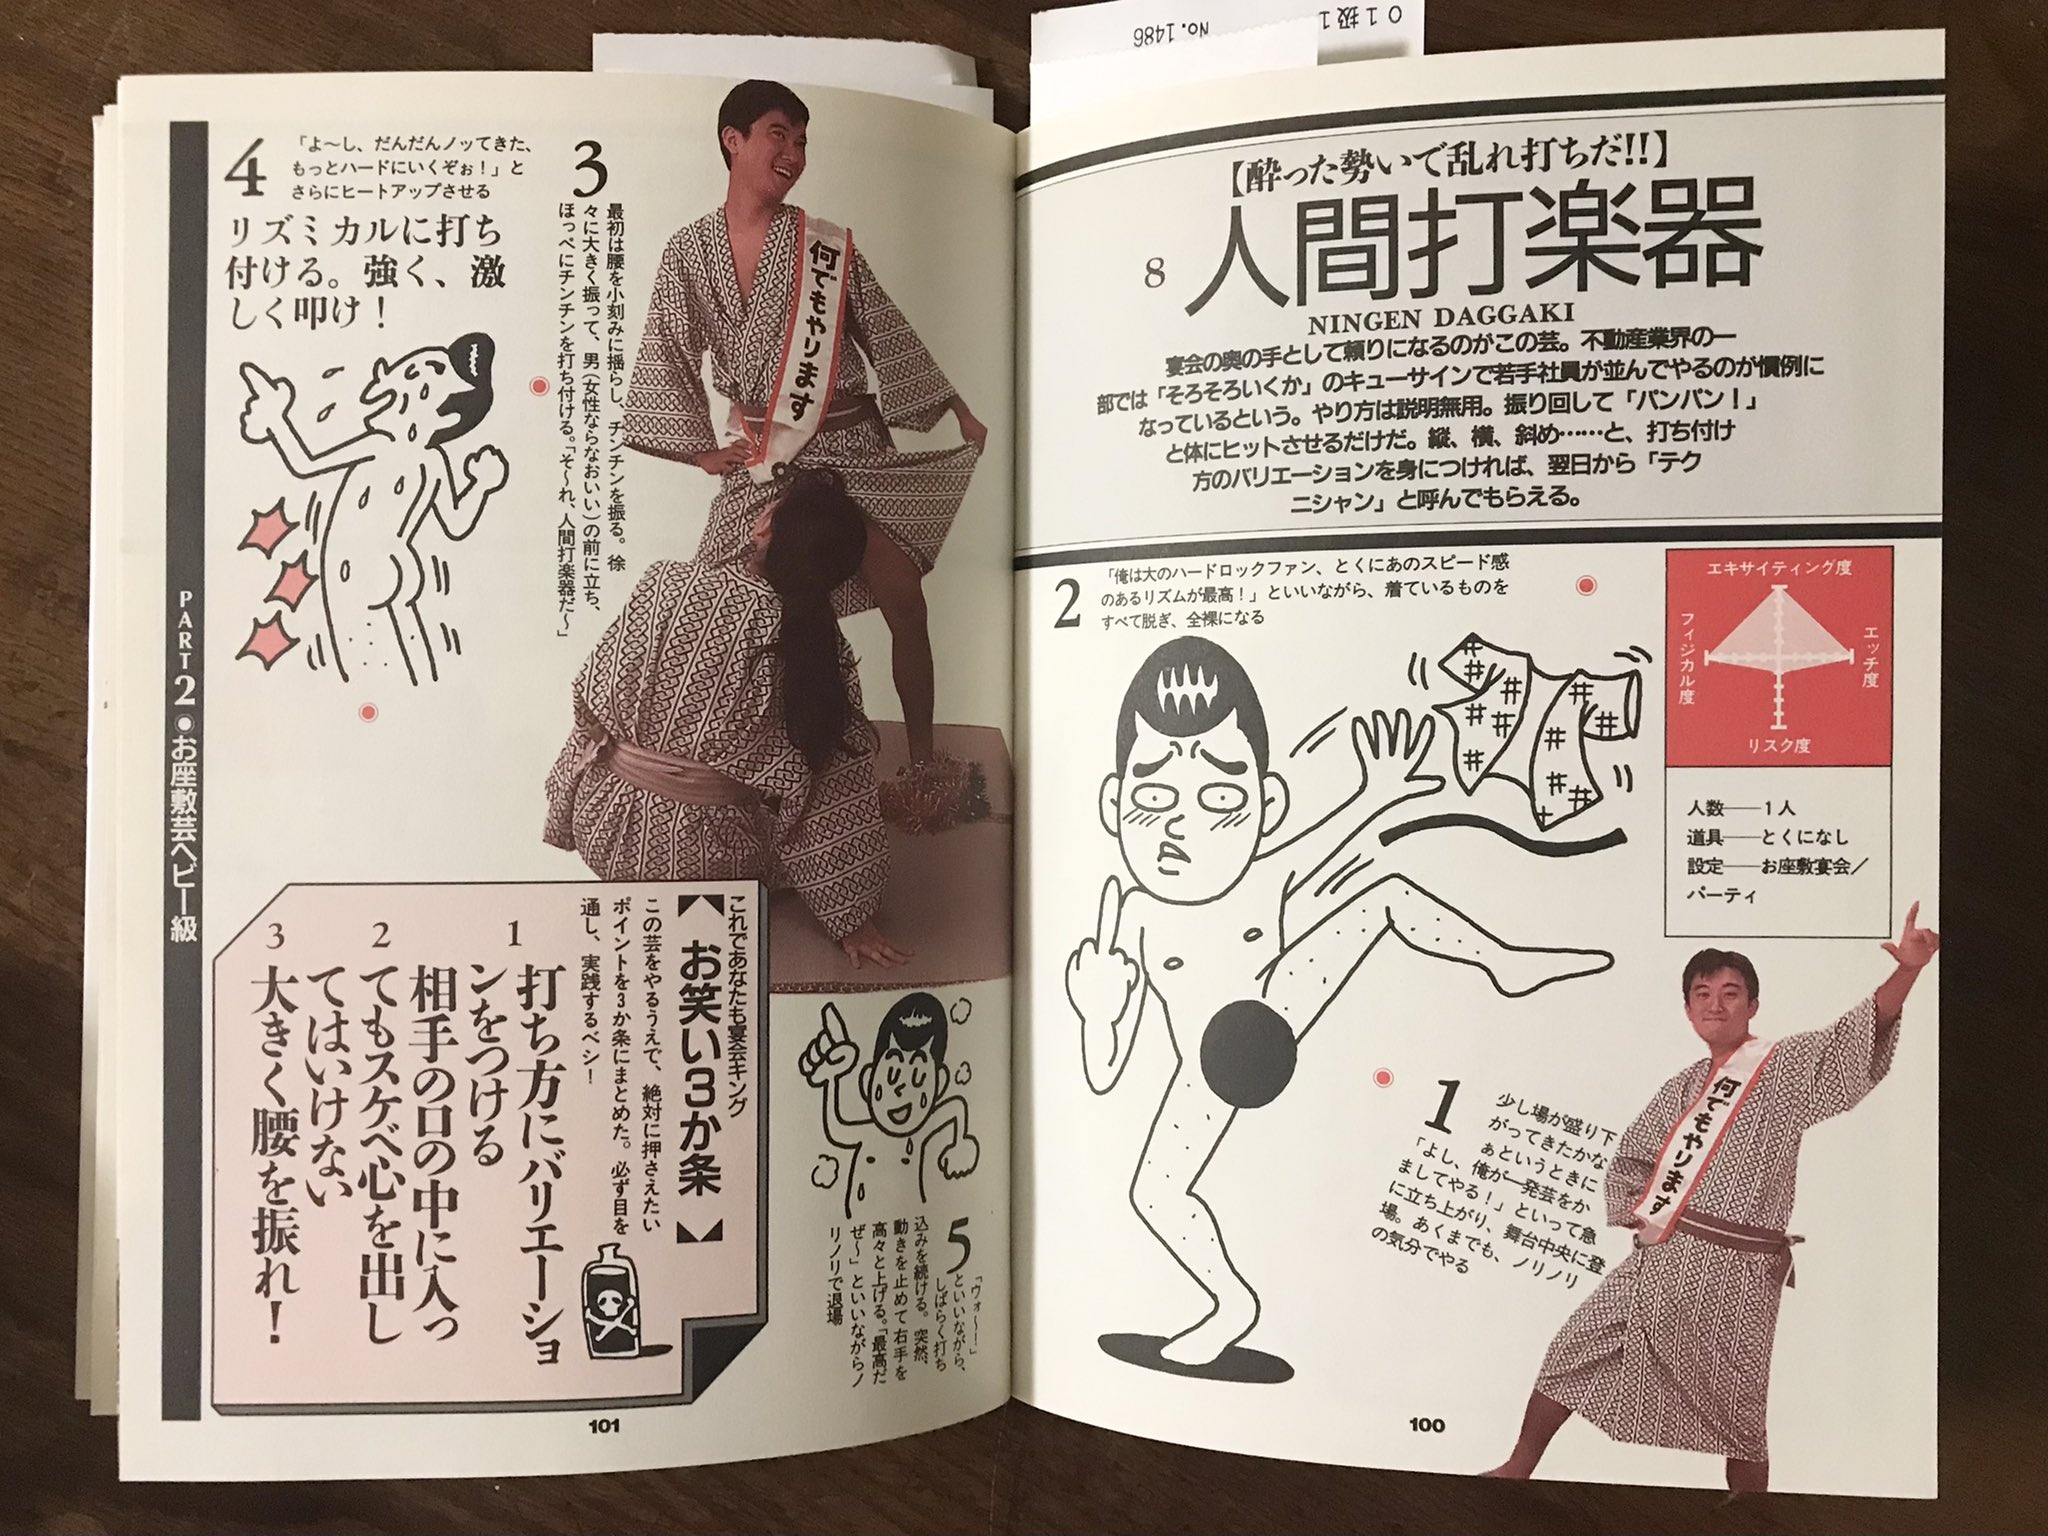 No.1486
０１扱１
【酔った勢いで乱れ打ちだ!!】
8
人間打楽器
NINGEN DAGGAKI
宴会の奥の手として頼りになるのがこの芸。不動産業界の一
部では「そろそろいくか」のキューサインで若手社員が並んでやるのが慣例に
なっているという。やり方は説明無用。振り回して「パンパン！」
と体にヒットさせるだけだ。縦、横、斜め……と、打ち付け
方のバリエーションを身につければ、翌日から「テク
ニシャン」と呼んでもらえる。
エキサイティング度
フィジカル度
エッチ度
リスク度
人数──１人
道具──とくになし
設定──お座敷宴会／
パーティ
1
少し場が盛り下
がってきたかな
ぁというときに
「よし、俺が一発芸をか
ましてやる！」といって急
に立ち上がり、舞台中央に登
場。あくまでも、ノリノリ
の気分でやる
何でもやります
2
「俺は大のハードロックファン、とくにあのスピード感
のあるリズムが最高！」といいながら、着ているものを
すべて脱ぎ、全裸になる
100
3
最初は腰を小刻みに揺らし、チンチンを振る。徐
々に大きく振って、男（女性ならなおいい）の前に立ち、
ほっぺにチンチンを打ち付ける。「そ〜れ、人間打楽器だ〜」
何でもやります
4
「よ〜し、だんだんノッてきた、
もっとハードにいくぞぉ！」と
さらにヒートアップさせる
リズミカルに打ち
付ける。強く、激
しく叩け！
5
「ヴォ〜！」
といいながら、
しばらく打ち
込みを続ける。突然、
動きを止めて右手を
高々と上げる。「最高だ
ぜ〜」といいながらノ
リノリで退場
これであなたも宴会キング
【お笑い３か条】
この芸をやるうえで、絶対に押さえたい
ポイントを３か条にまとめた。必ず目を
通し、実践するベシ！
1
打ち方にバリエーショ
ンをつける
2
相手の口の中に入っ
てもスケベ心を出し
てはいけない
3
大きく腰を振れ！
PART2◉お座敷芸ヘビー級
101